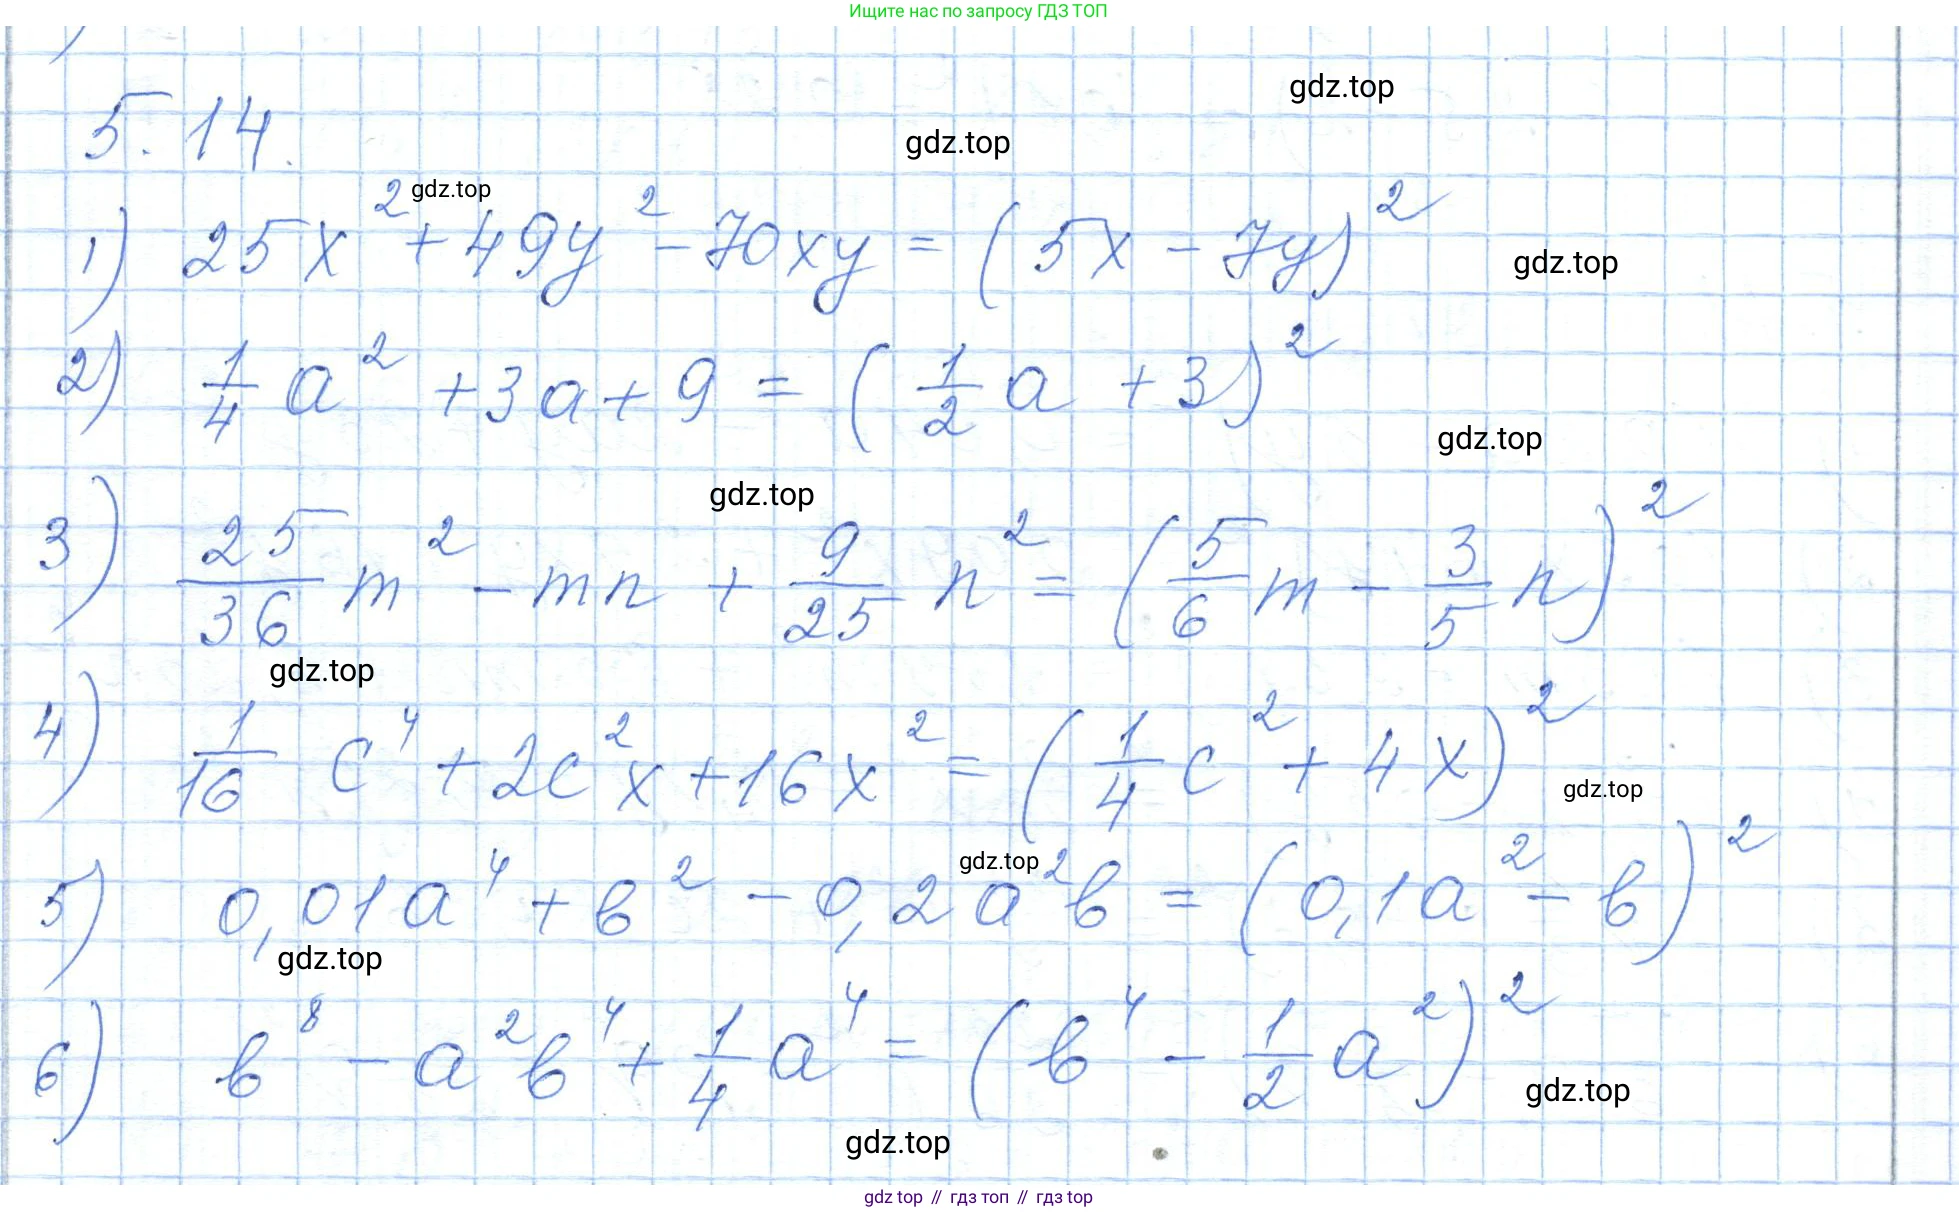 Ищите нас по запросу ГДЗ ТОП
gdz.top
5.14.
gdz.top
gdz.top
1) 25x² + 49y² - 70xy = (5x - 7y)²
gdz.top
2) 1/4 a² + 3a + 9 = (1/2 a + 3)²
gdz.top
gdz.top
3) 25/36 m² - mn + 9/25 n² = (5/6 m - 3/5 n)²
gdz.top
4) 1/16 c⁴ + 2c²x + 16x² = (1/4 c² + 4x)²
gdz.top
gdz.top
5) 0,01a⁴ + b² - 0,2a²b = (0,1a² - b)²
gdz.top
6) b⁸ - a²b⁴ + 1/4 a⁴ = (b⁴ - 1/2 a²)²
gdz.top
gdz.top
gdz top // гдз топ // гдз top